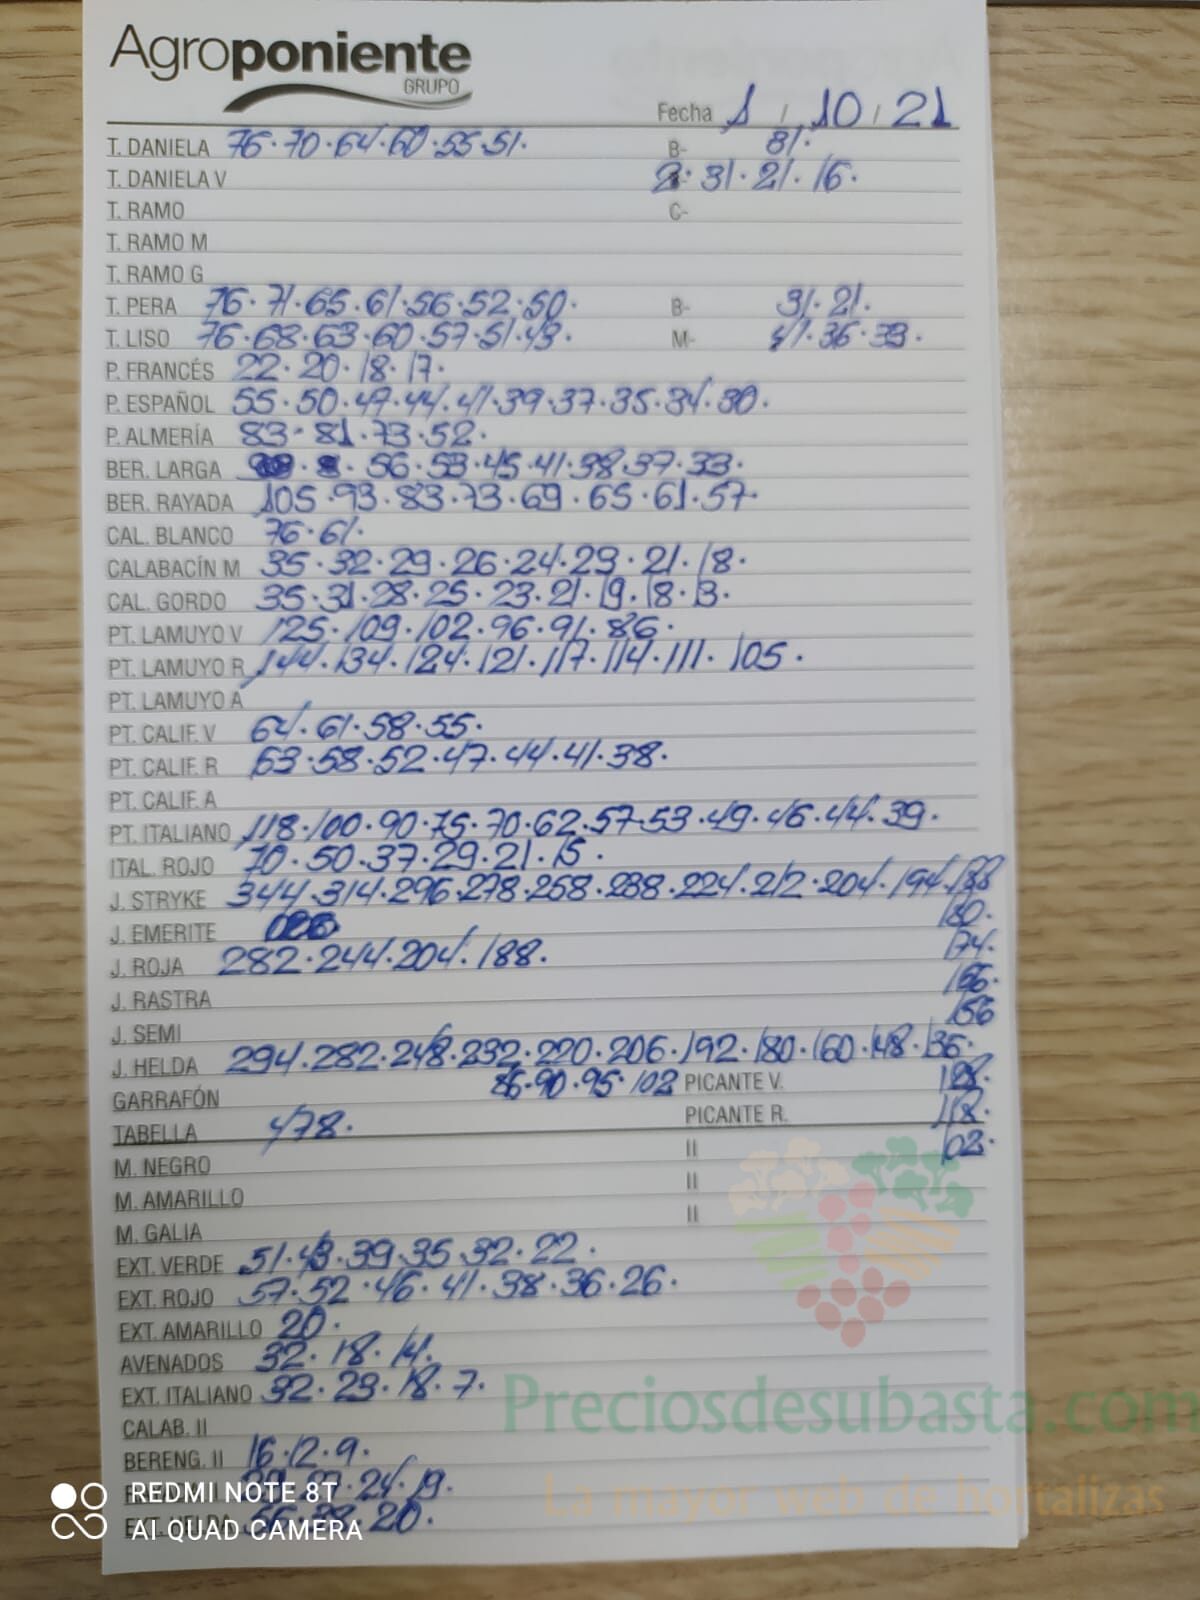 Agroponiente
GRUPO
Fecha 1 / 10 / 21
T. DANIELA 76·70·64·60·55·51· B- 81·
T. DANIELA V 31·21·16·
T. RAMO C-
T. RAMO M
T. RAMO G
T. PERA 76·71·65·61·56·52·50· B- 31·21·
T. LISO 76·68·63·60·57·51·43· M- 41·36·33·
P. FRANCÉS 22·20·18·17·
P. ESPAÑOL 55·50·47·44·41·39·37·35·34·30·
P. ALMERÍA 83·81·73·52·
BER. LARGA 56·53·45·41·38·37·33·
BER. RAYADA 105·93·83·73·69·65·61·57·
CAL. BLANCO 76·61·
CALABACÍN M 35·32·29·26·24·23·21·18·
CAL. GORDO 35·31·28·25·23·21·19·18·13·
PT. LAMUYO V 125·109·102·96·91·86·
PT. LAMUYO R 144·134·124·121·117·114·111·105·
PT. LAMUYO A
PT. CALIF. V 64·61·58·55·
PT. CALIF. R 63·58·52·47·44·41·38·
PT. CALIF. A
PT. ITALIANO 118·100·90·75·70·62·57·53·49·46·44·39·
ITAL. ROJO 70·50·37·29·21·15·
J. STRYKE 344·314·296·278·258·238·224·212·204·194·188
J. EMERITE 180·
J. ROJA 282·244·204·188· 174·
J. RASTRA 166·
J. SEMI 156
J. HELDA 294·282·248·232·220·206·192·180·160·148·136·
GARRAFÓN 86·90·95·102 PICANTE V. 128·
TABELLA 478· PICANTE R. 118·
M. NEGRO II 102·
M. AMARILLO II
M. GALIA II
EXT. VERDE 51·43·39·35·32·22·
EXT. ROJO 57·52·46·41·38·36·26·
EXT. AMARILLO 20·
AVENADOS 32·18·14·
EXT. ITALIANO 32·23·18·7·
Preciosdesubasta.com
CALAB. II
BERENG. II 16·12·9·
24·19·
La mayor web de hortalizas
REDMI NOTE 8T
20·
AI QUAD CAMERA